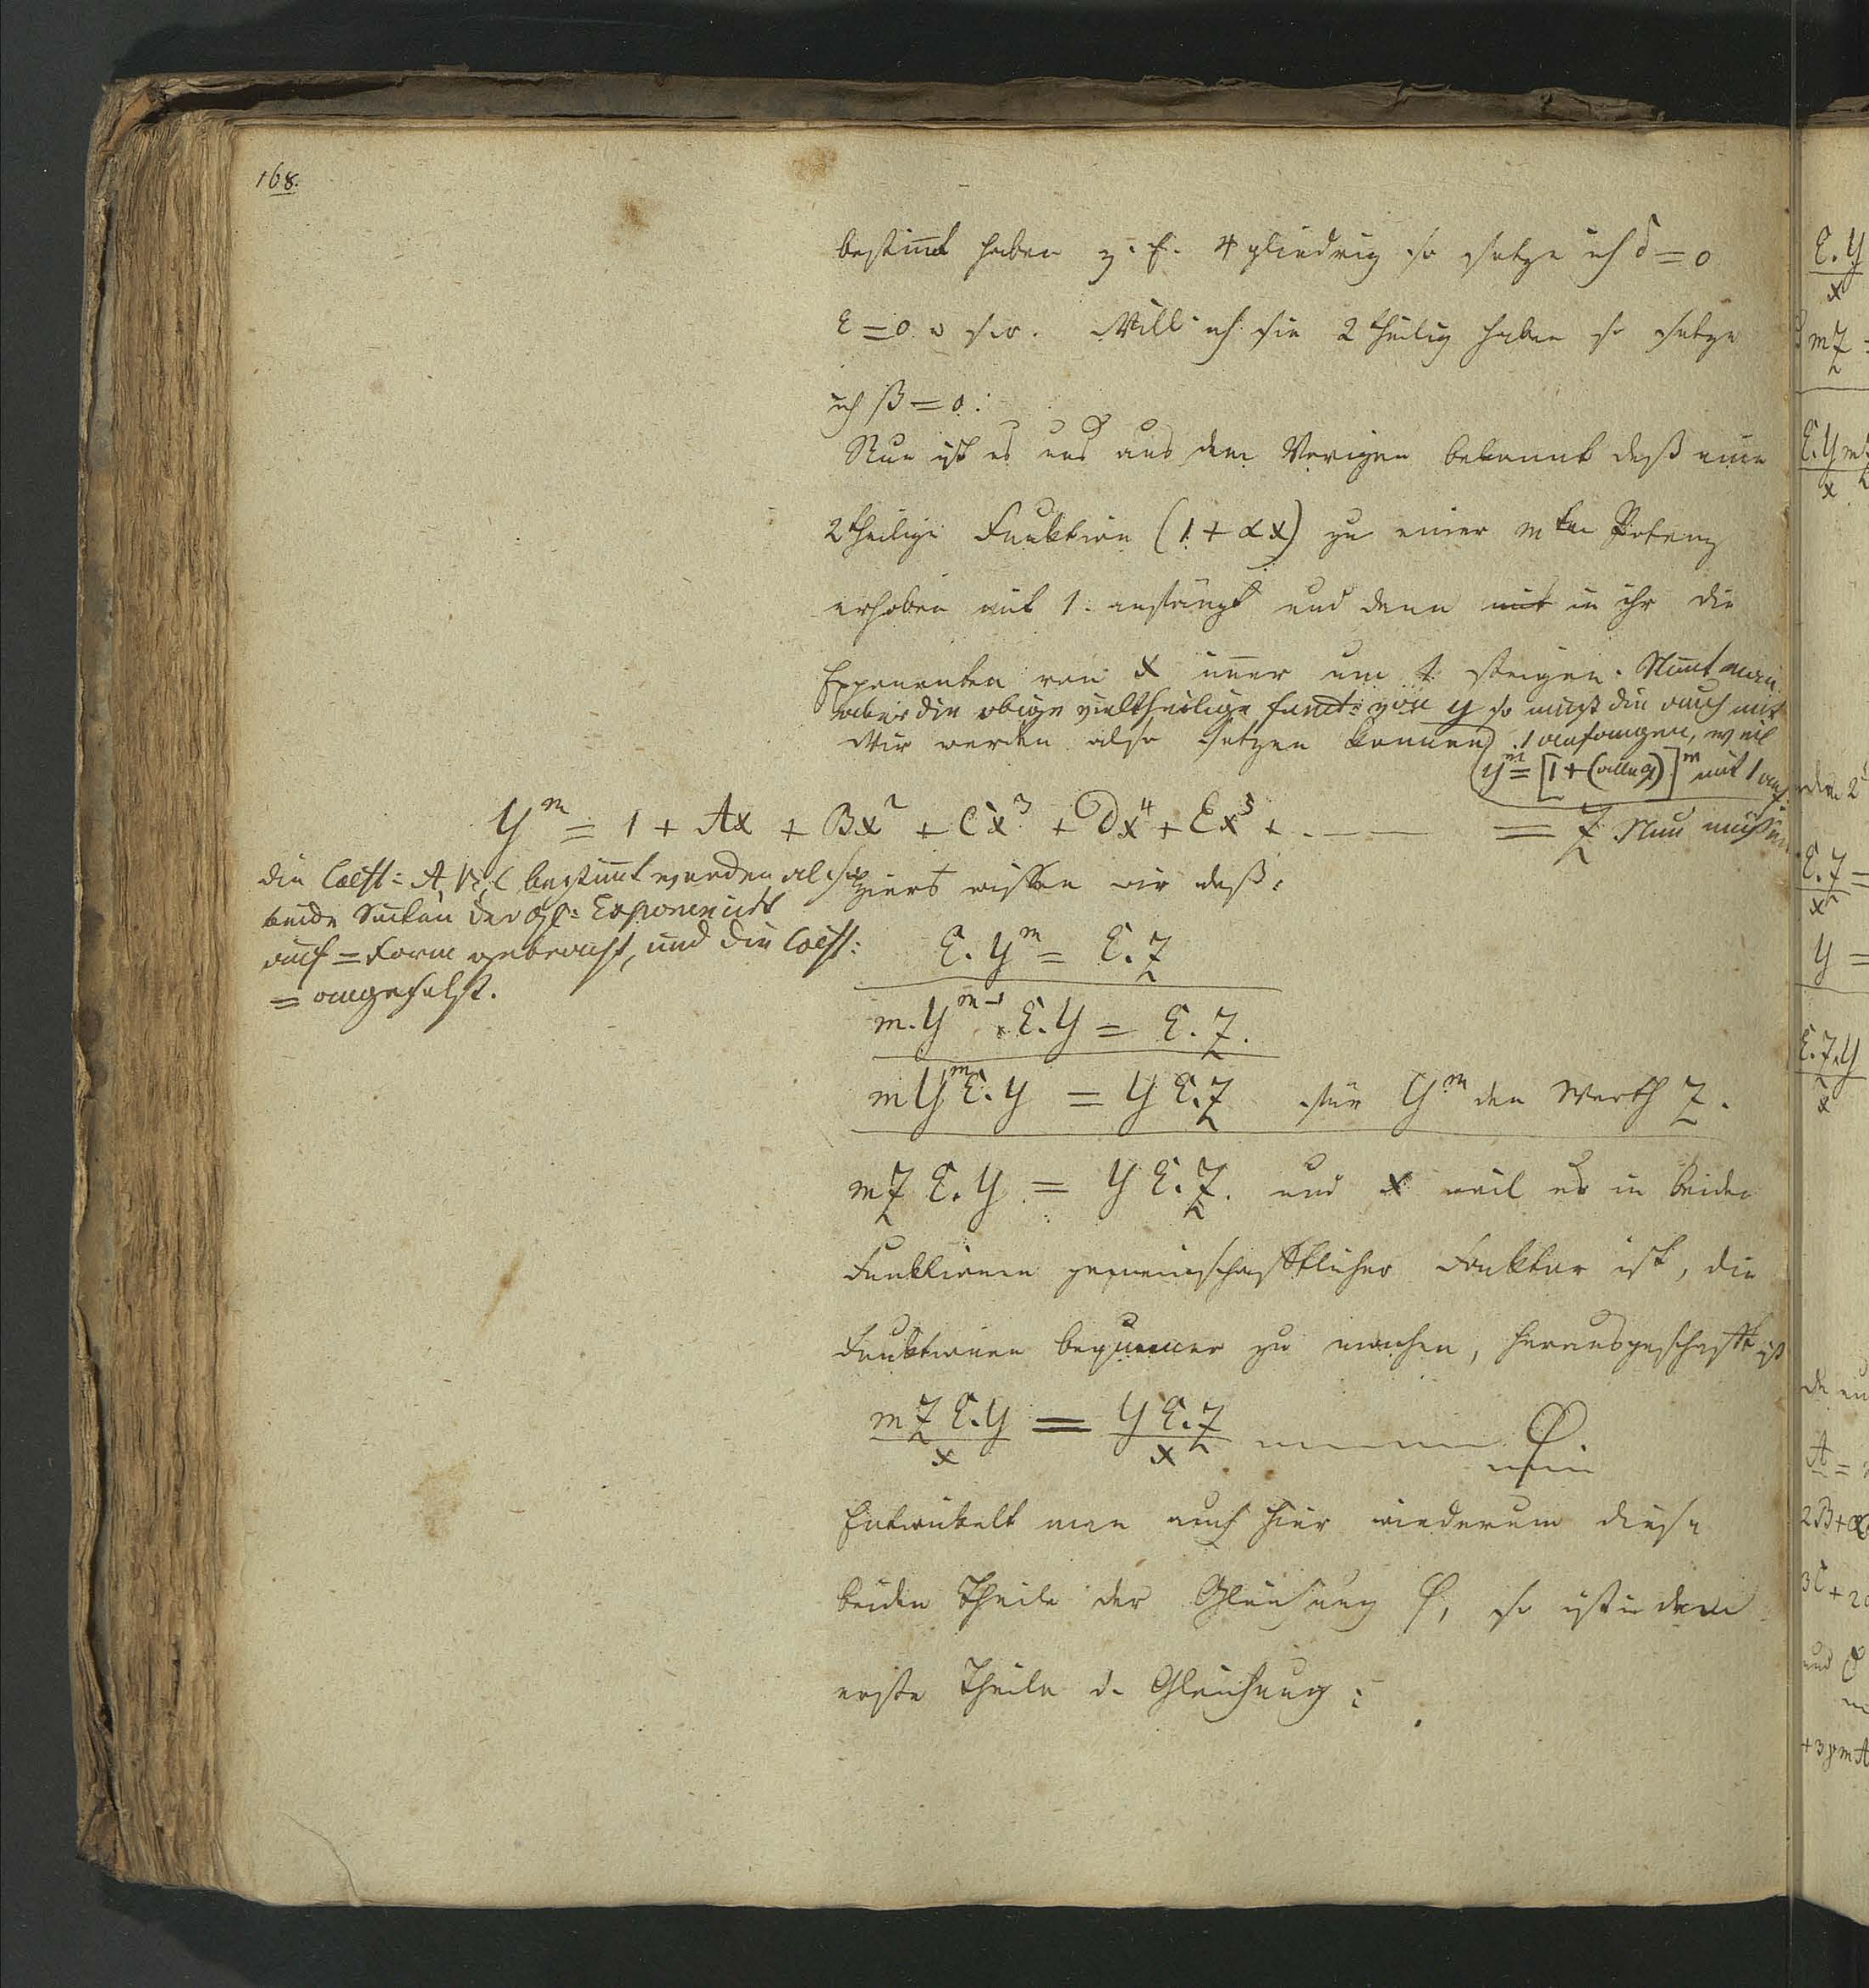 168.
bestimt haben z. E. 4 gliedrig so setze ich δ = 0
ε = 0 u s w. Will ich sie 2 theilig haben so setze
ich β = 0:
Nun ist es uns aus dem Vorigen bekannt daß eine
2 theilige Funktion (1 + αx) zu einer m ten Potenz
erhoben mit 1. anfängt und dann mit in ihr die
Exponenten von x imer um 1 steigen. Nimt man
aber die obige vieltheilige funct: von y so muß die auch mit
Wir werden also setzen können 1 anfangen, weil
y^m = [1 + ( )]^m mit 1 anf
y^m = 1 + Ax + Bx² + Cx³ + Dx⁴ + Ex⁵ + . — — = Z Nun müssen
die Coeff: A, B, C bestimt werden also
hierzu wissen wir daß:
beide der Gl: Exponent
auf = Form gebracht, und die Coeff:
= angesetzt.
E. y^m = E. Z
m. y^m-1 . E. y = E. Z.
m y^m E. y = y E. Z für y^m den Werth Z.
m Z E. y = y E. Z. und x weil es in beiden
Funktionen gemeinschaftlicher Faktor ist, die
Funktionen bequemer zu machen, herausgeschafft ist
m Z E. y / x = y E. Z / x — — — φ.
Entwikelt man auch hier wiederum diese
beiden Theile der Gleichung φ, so ist in dem
erste Theile d. Gleichung:
E. y
x
m Z
E. y m
x
E. Z =
x
y =
E. Z. y
x
A =
2B + α
3C + 2
und
+ 3γmA